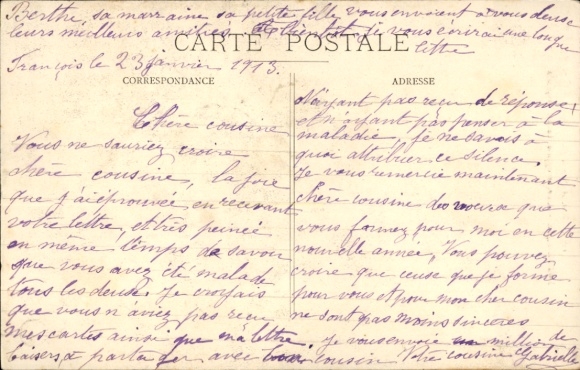 Berthe, sa marraine, sa petite fille, vous envoient a vous deuse
leurs meilleurs amitiés. bientot je vous ecrirai une longue
lettre
CARTE POSTALE
François le 23 janvier 1913.
CORRESPONDANCE
Chère cousine
Vous ne sauriez croire
chère cousine, la joie
que j'ai éprouvée en recevant
votre lettre, et très peinée
en même temps de savoir
que vous avez été malade
tous les deuse. Je croyais
que vous n'aviez pas reçu
mes cartes ainsi que ma lettre.
ADRESSE
N'ayant pas reçu de réponse
et n'ayant pas penser à la
maladie, je ne savais à
quoi attribuer ce silence.
Je vous remercie maintenant
chère cousine des voeux que
vous formez pour moi en cette
nouvelle année, Vous pouvez
croire que ceuse que je forme
pour vous et pour mon cher cousin
ne sont pas moins sincères
Je vous envoie un million de
baisers a partager avec cousin Votre cousine Gabrielle